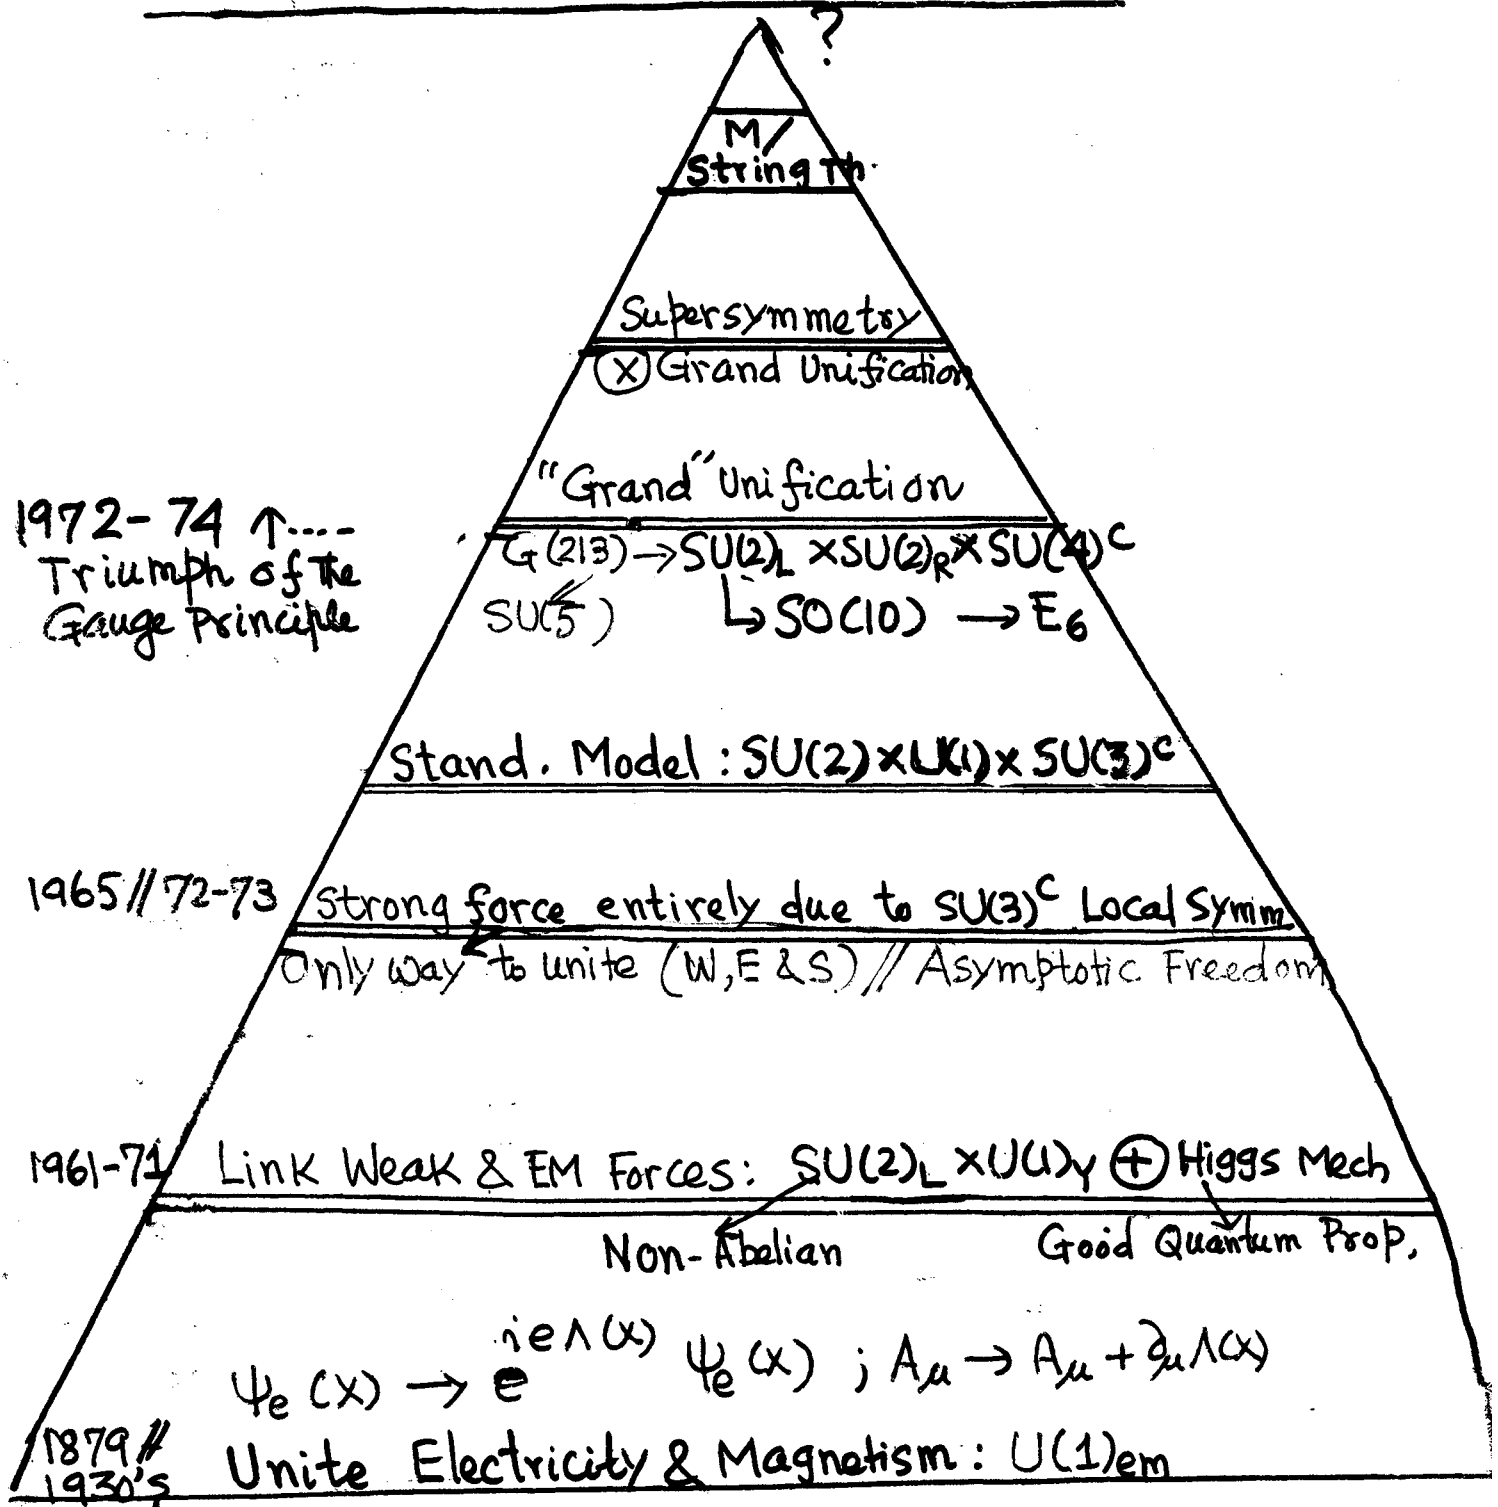 ?
M/
String Th.
Supersymmetry
⊗ Grand Unification
"Grand" Unification
1972-74 ↑....
Triumph of the
Gauge Principle
G(213) → SU(2)L × SU(2)R × SU(4)^C
SU(5) ↳ SO(10) → E6
Stand. Model : SU(2) × U(1) × SU(3)^C
1965 // 72-73 Strong force entirely due to SU(3)^C Local Symm
Only way to unite (W, E & S) // Asymptotic Freedom
1961-71 Link Weak & EM Forces: SU(2)L × U(1)Y ⊕ Higgs Mech
Non-Abelian Good Quantum Prop.
ψe(x) → e^ieΛ(x) ψe(x) ; Aμ → Aμ + ∂μΛ(x)
1879 //
1930's Unite Electricity & Magnetism : U(1)em